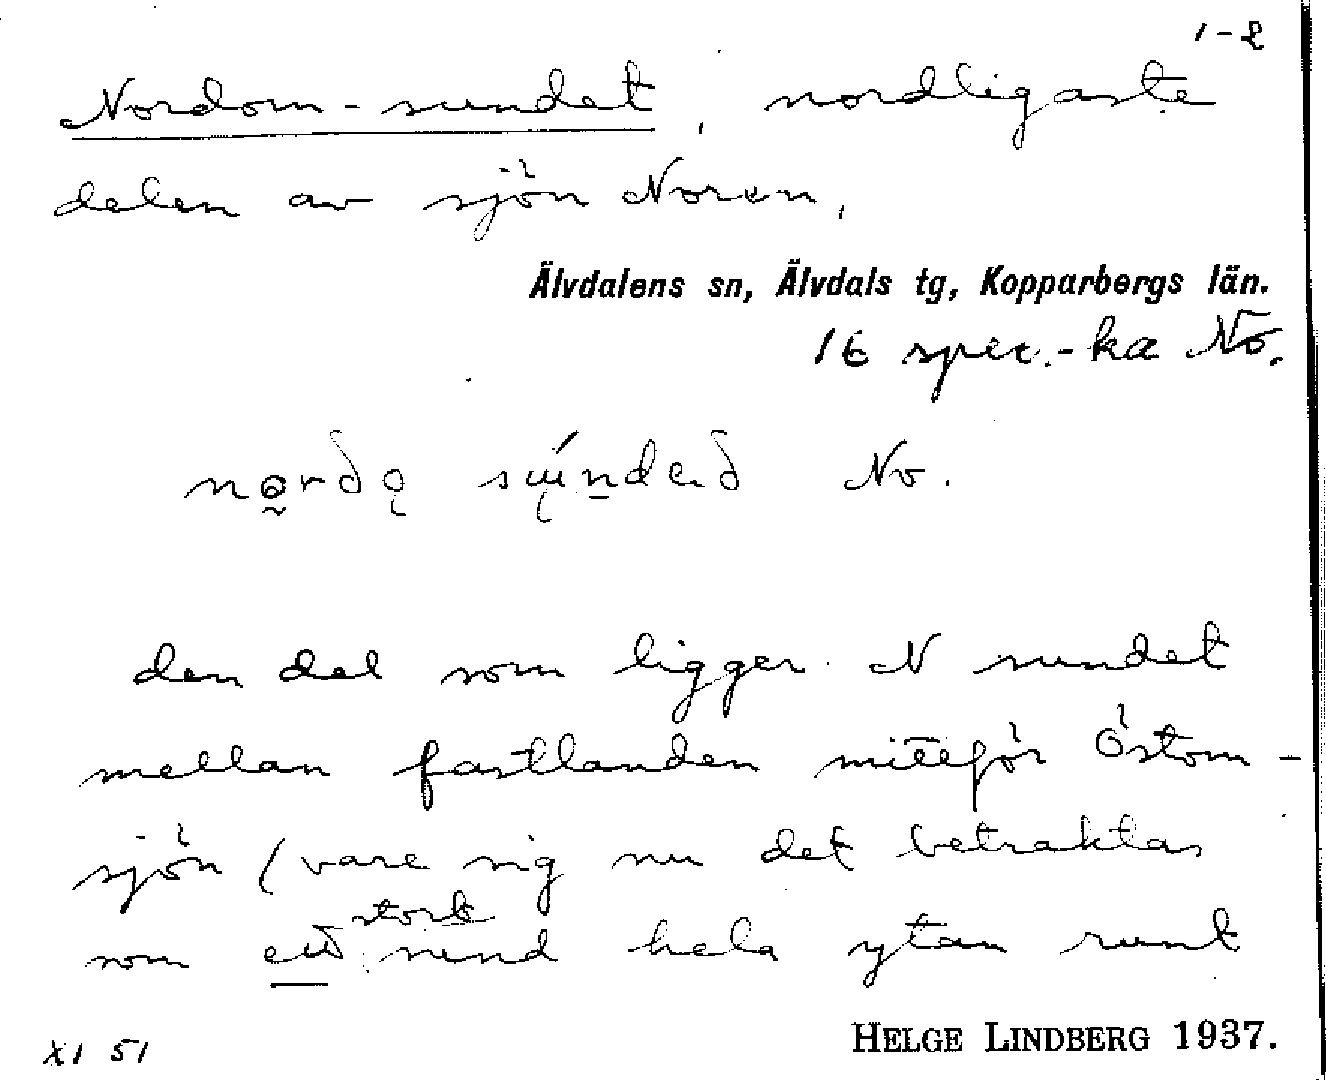 1-2
Nordom-sundet, nordligaste
delen av sjön Noren,
Älvdalens sn, Älvdals tg, Kopparbergs län.
16 spec.-ka No.
No.
den del som ligger N sundet
mellan fastlanden mittför Östom-
sjön (vare sig nu det betraktas
stort
som ett sund hela ytan runt
XI 51
HELGE LINDBERG 1937.